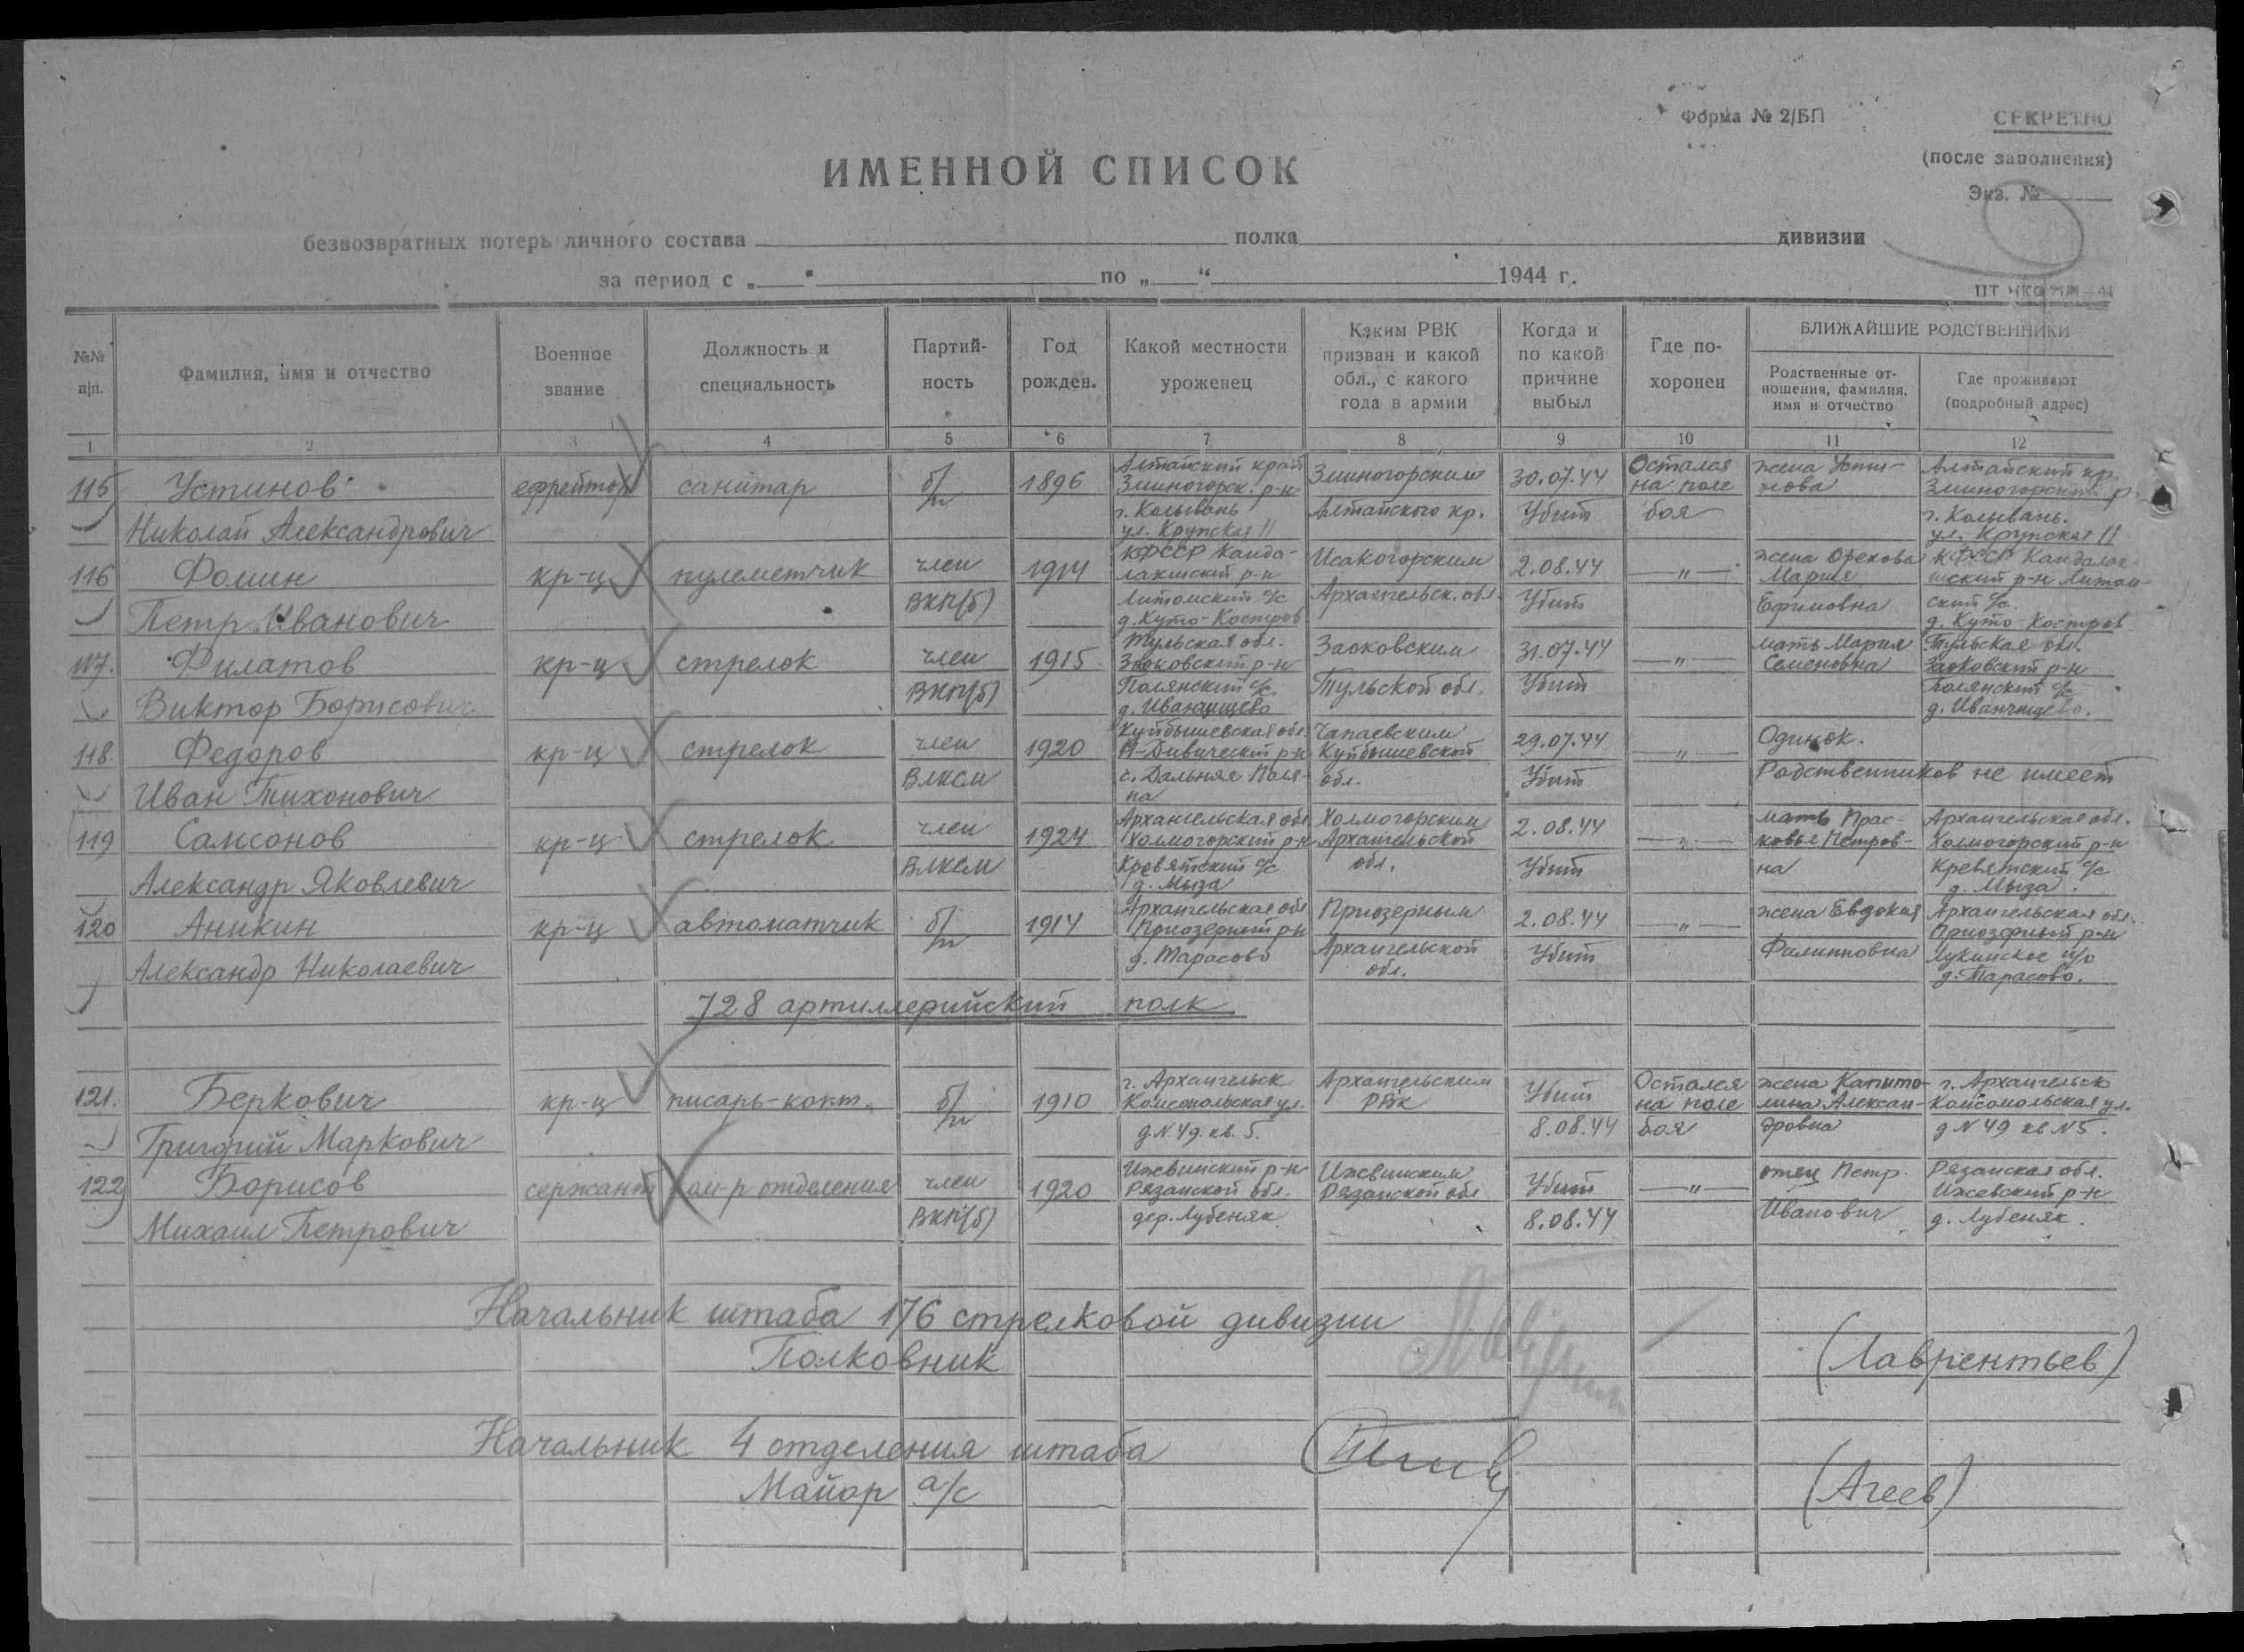 Форма № 2/БП
СЕКРЕТНО
(после заполнения)
Экз. №
ИМЕННОЙ СПИСОК
безвозвратных потерь личного состава полка дивизии
за период с „ “ по „ “ 1944 г.
№№ п/п.
Фамилия, имя и отчество
Военное звание
Должность и специальность
Партий-
ность
Год рожден.
Какой местности уроженец
Каким РВК
призван и какой
обл., с какого
года в армии
Когда и
по какой
причине
выбыл
Где по-
хоронен
БЛИЖАЙШИЕ РОДСТВЕННИКИ
Родственные от-
ношения, фамилия,
имя и отчество
Где проживают
(подробный адрес)
1 2 3 4 5 6 7 8 9 10 11 12
115 Устинов Николай Александрович
ефрейтор
санитар
б/п
1896
Алтайский край
Змеиногорск. р-н
г. Колывань
ул. Крупская 11
Змеиногорским
Алтайского кр.
30.07.44
Убит
Остался
на поле
боя
жена Усти-
нова
Алтайский кр.
Змеиногорский р
г. Колывань.
ул. Крупская 11
116 Фомин Петр Иванович
кр-ц
пулеметчик
член
ВКП(б)
1914
КФССР Канда-
лакшский р-н
д. Куто-Костров
Исакогорским
Архангельск. обл.
2.08.44
Убит
—„—
жена Орехова
Мария
Ефимовна
КФССР Кандалак-
шский р-н
ский с/с.
д. Куто-Костров
117. Филатов Виктор Борисович
кр-ц
стрелок
член
ВКП(б)
1915
Тульская обл.
Заокский р-н
Полянский с/с.
Заоковским
Тульской обл.
31.07.44
Убит
—„—
мать Мария
Семеновна
Тульская обл.
Заоковский р-н
Полянский с/с
118. Федоров Иван Тихонович
кр-ц
стрелок
член
ВЛКСМ
1920
Куйбышевская обл.
с. Дальняя Поля-
на
Чапаевским
Куйбышевской
обл.
29.07.44
Убит
—„—
Одинок.
Родственников не имеет
119 Самсонов Александр Яковлевич
кр-ц
стрелок
член
ВЛКСМ
1924
Архангельская обл.
Холмогорский р-н
Кревятский с/с
д. Мыза
Холмогорским
Архангельской
обл.
2.08.44
Убит
—„—
мать Прас-
ковья Петров-
на
Архангельская обл.
Холмогорский р-н
Кревятский с/с
д. Мыза.
120 Аникин Александр Николаевич
кр-ц
автоматчик
б/п
1914
Архангельская обл
Приозерный р-н
д. Тарасово
Приозерным
Архангельской
обл.
2.08.44
Убит
—„—
жена Евдокия
Филипповна
Архангельская обл.
Приозерный р-н
Лукинское п/о
д. Тарасово.
728 артиллерийский полк
121. Беркович Григорий Маркович
кр-ц
писарь-конт.
б/п
1910
г. Архангельск
Комсомольская ул.
д. N 49. кв. 5.
Архангельским
РВК
Убит
8.08.44
Остался
на поле
боя
жена Капито-
лина Алексан-
дровна
г. Архангельск
Комсомольская ул.
д N 49 кв N5.
122 Борисов Михаил Петрович
сержант
ком-р отделения
член
ВКП(б)
1920
Ижевинский р-н
Рязанской обл.
дер. Лубеняк
Ижевинским
Рязанской обл
Убит
8.08.44
—„—
отец Петр
Иванович
Рязанская обл.
Ижевский р-н
д. Лубеняк.
Начальник штаба 176 стрелковой дивизии
Полковник
(Лаврентьев)
Начальник 4 отделения штаба
Майор а/с
(Агеев)